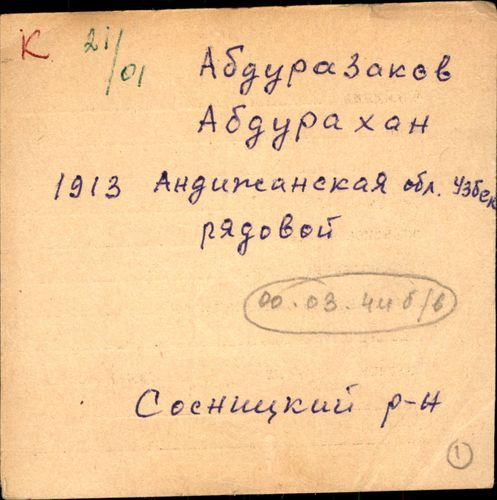 К 21/01
Абдуразаков
Абдурахан
1913 Андижанская обл. Узбек
рядовой
00.03.44 б/в
Сосницкий р-н
1